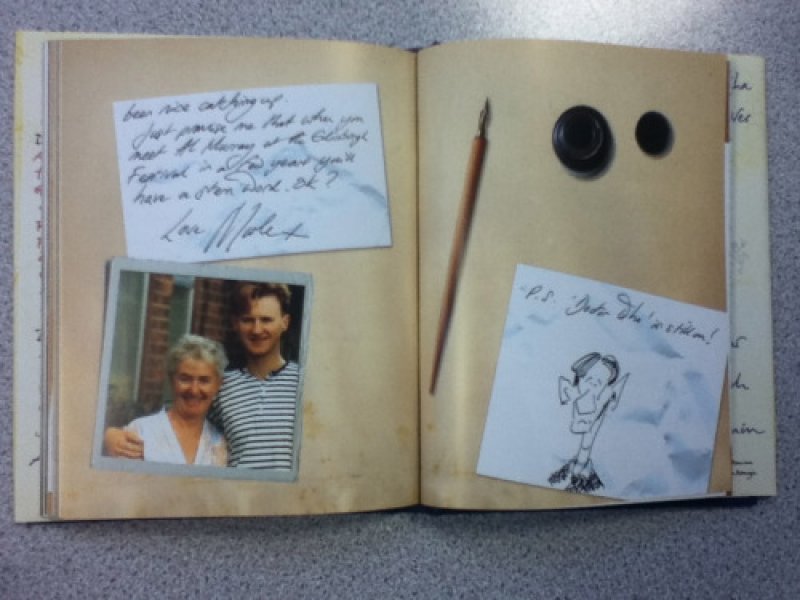 been nice catching up.
Just promise me that when you
meet Al Murray at the Edinburgh
Festival in a few years you'll
have a stern word. OK?
Love
P.S. 'Doctor Who' is still on!